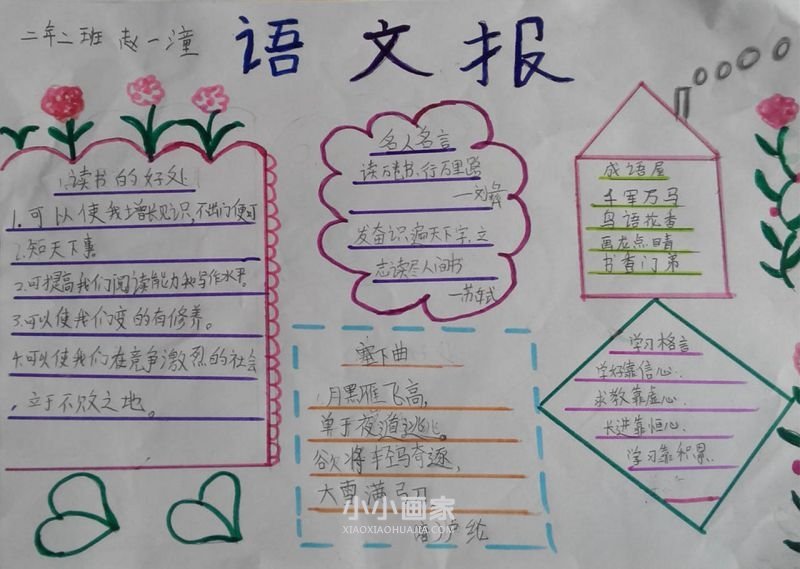 二年二班 赵一潼
语文报
读书的好处
1.可以使我们增长见识,不出门便可
知天下事
2.可提高我们阅读能力和写作水平。
3.可以使我们变的有修养。
4.可以使我们在竞争激烈的社会
立于不败之地。
名人名言
读万卷书,行万里路
—刘彝
发奋识遍天下字,立
志读尽人间书
—苏轼
成语屋
千军万马
鸟语花香
画龙点睛
书香门弟
塞下曲
月黑雁飞高,
单于夜遁逃。
欲将轻骑逐,
大雪满弓刀
卢纶
学习格言
学好靠信心.
求教靠虚心.
长进靠恒心.
学习靠积累.
小小画家
XIAOXIAOHUAJIA.COM